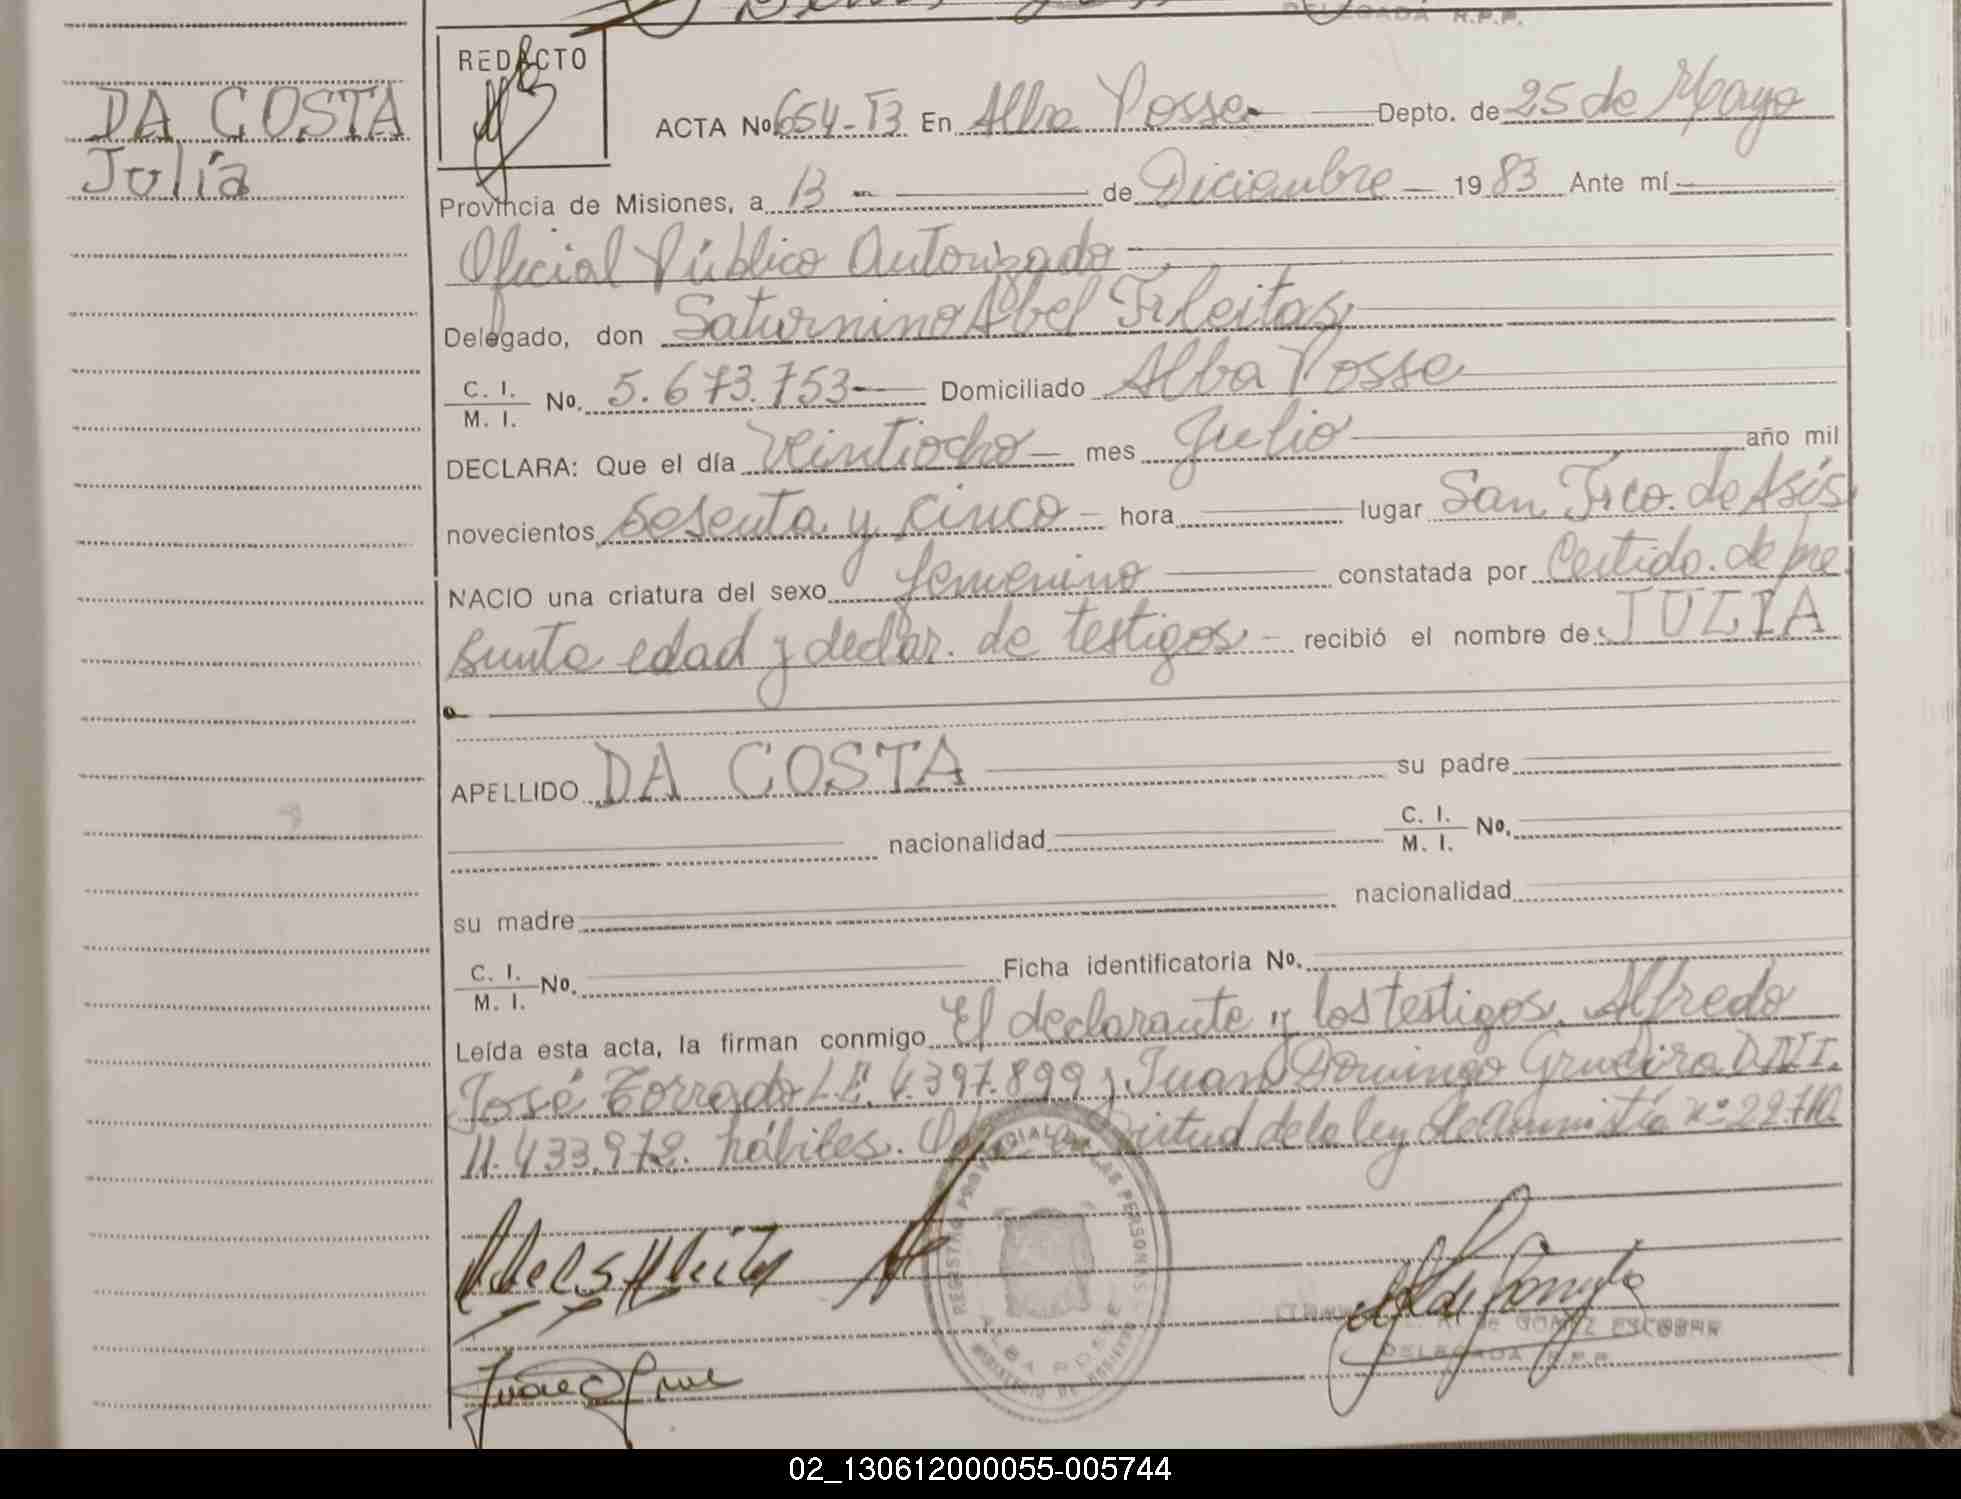 DELEGADA R.P.P.
REDACTO
DA COSTA
Julia
ACTA No 654-T3 En Alba Posse Depto. de 25 de Mayo
Provincia de Misiones, a 13 de Diciembre 1983 Ante mí
Oficial Público Autorizado
Delegado, don Saturnino Abel Fleitas
C. I. / M. I. No. 5.673.753 Domiciliado Alba Posse
DECLARA: Que el día Veintiocho mes Julio año mil
novecientos sesenta y cinco hora lugar San Fco. de Asís
NACIO una criatura del sexo femenino constatada por Certido. de pre
sunta edad y declar. de testigos recibió el nombre de JULIA
APELLIDO DA COSTA su padre
nacionalidad C. I. / M. I. No.
su madre nacionalidad
C. I. / M. I. No. Ficha identificatoria No.
Leída esta acta, la firman conmigo El declarante y los testigos Alfredo
José L.E. 4.397.899 y Juan Domingo D.N.I.
11.433.972. hábiles. virtud de la ley de Amnistía nº 22.710.
REGISTRO PROVINCIAL DE LAS PERSONAS
ALBA POSSE
de GOMEZ ESCOBAR
DELEGADA R.P.P.
02_130612000055-005744